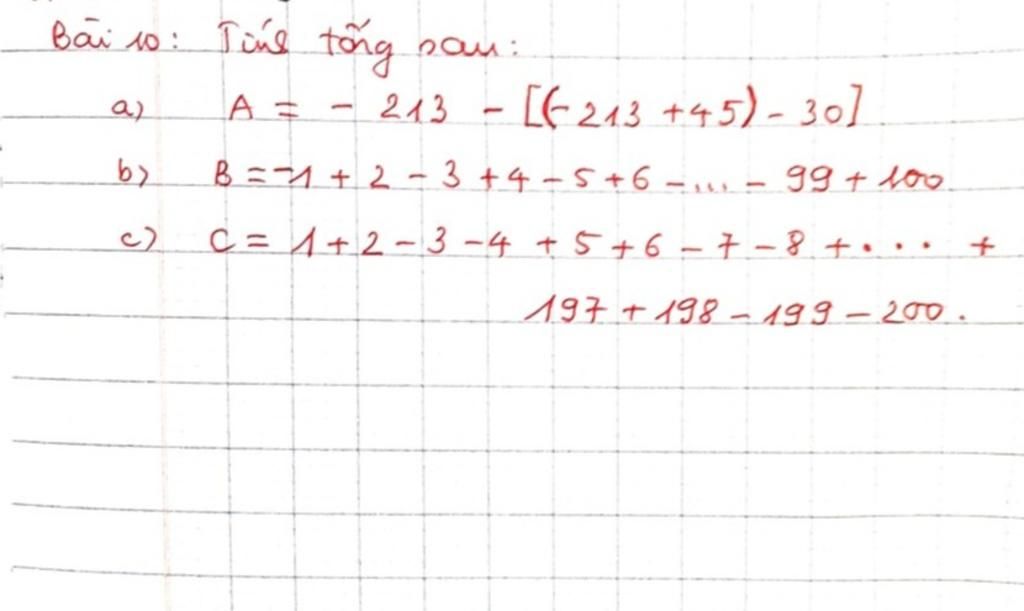 Bài 10: Tính tổng sau:
a) A = - 213 - [(-213 +45) - 30]
b) B = -1 + 2 - 3 + 4 - 5 + 6 - ... - 99 + 100
c) C = 1 + 2 - 3 - 4 + 5 + 6 - 7 - 8 + .... +
197 + 198 - 199 - 200.